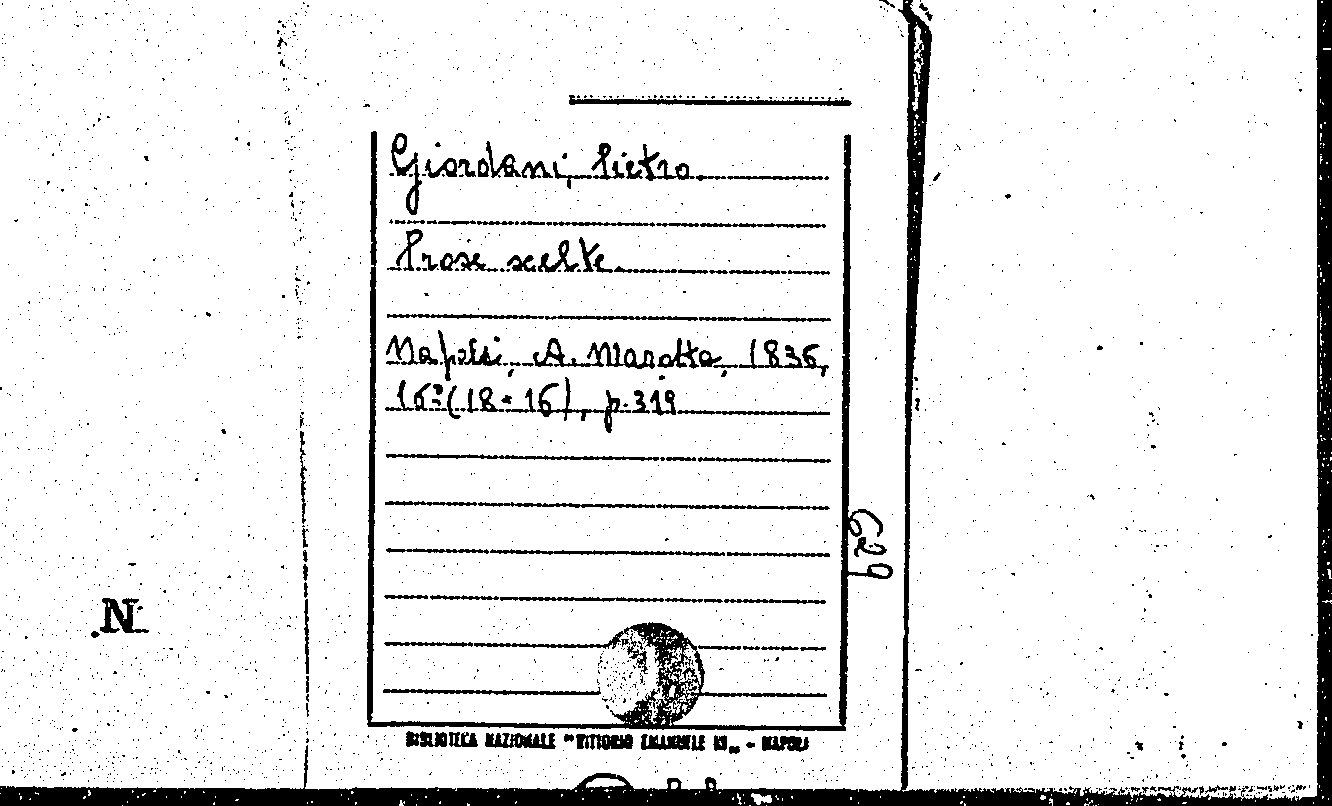 Giordani, Pietro.
Prose scelte.
Napoli, A. Marotta, 1836,
16º(18×16), p.319
629
N
BIBLIOTECA NAZIONALE "VITTORIO EMANUELE III" - NAPOLI